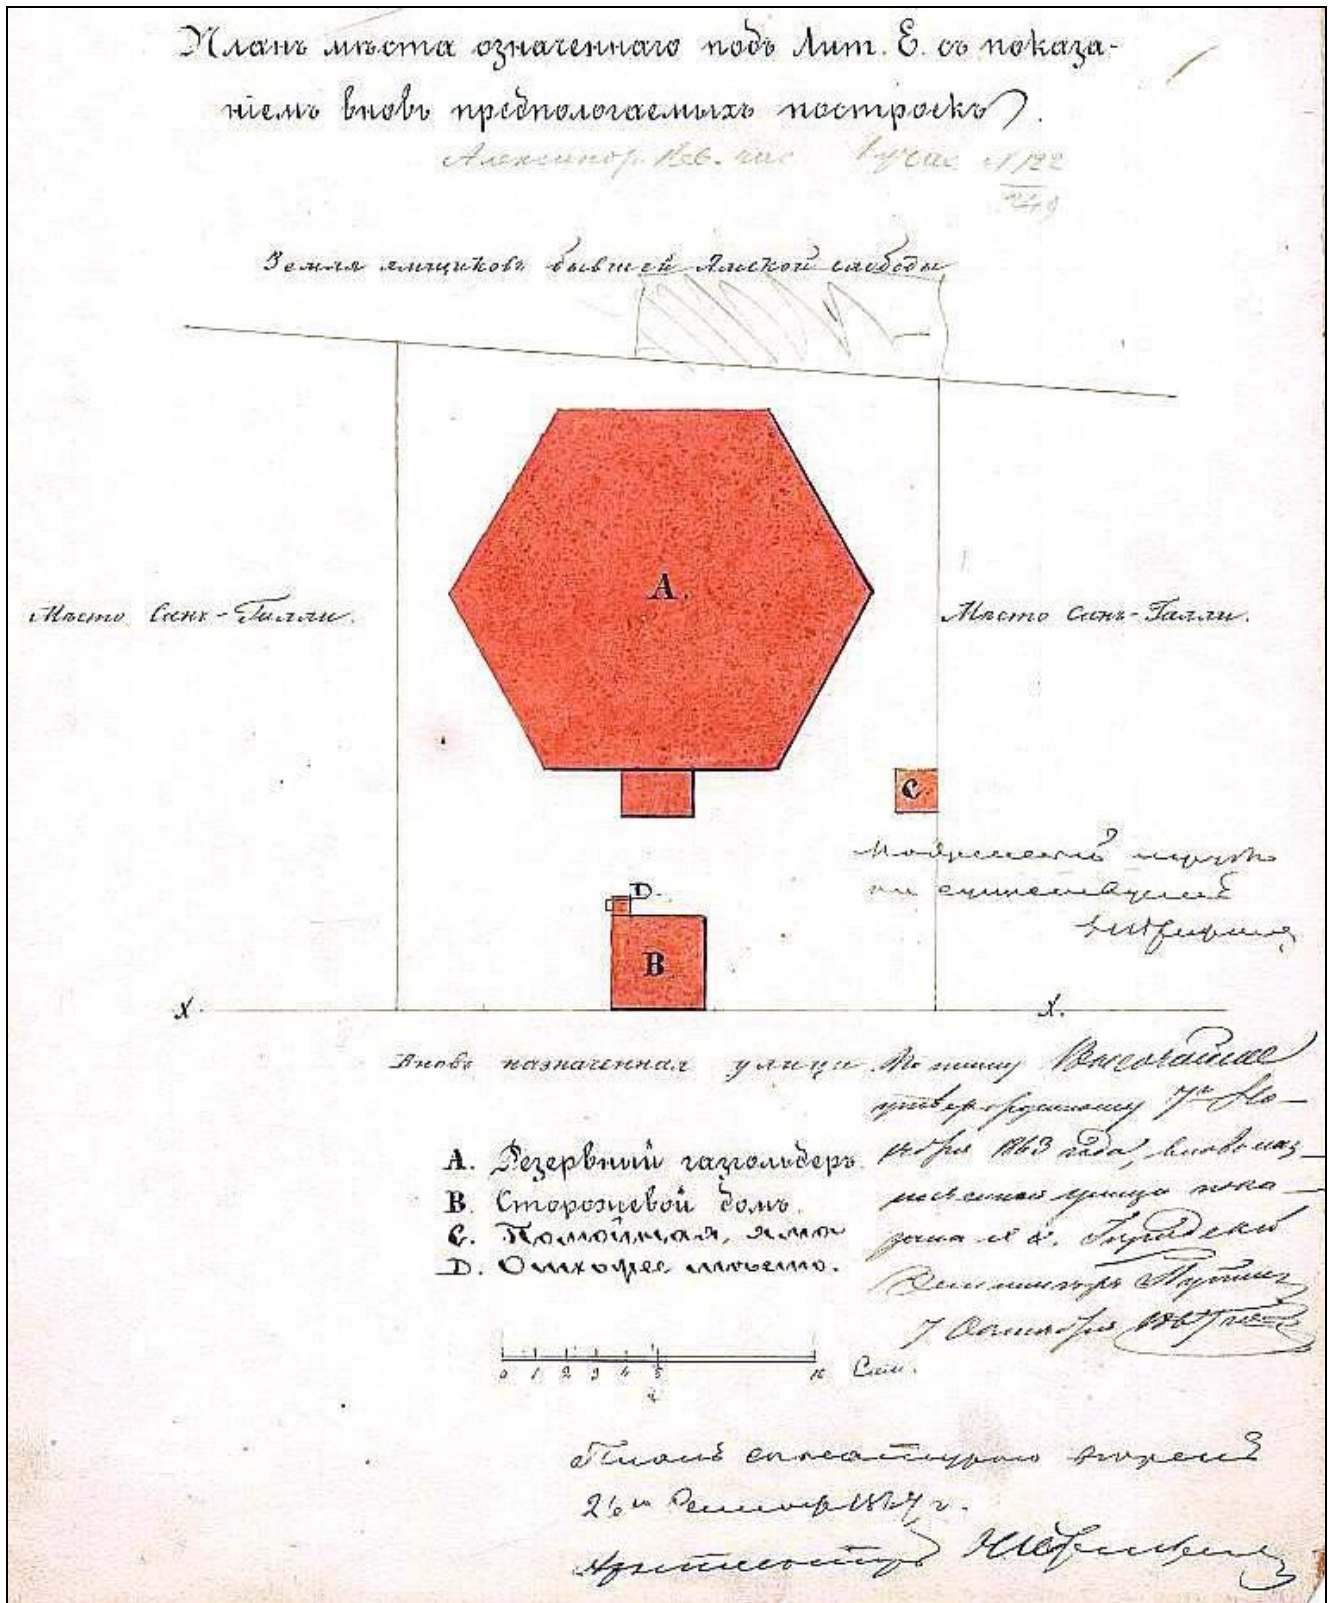 Планъ мѣста означеннаго подъ Лит. Е. съ показа-
ніемъ вновь предпологаемыхъ построекъ.
Александр. Нев. час 1 учас. N 122
249
Земля ямщиковъ бывшей Ямской слободы
A.
Мѣсто Санъ-Галли.
Мѣсто Санъ-Галли.
C.
D.
B
не существуетъ
X.
X.
Вновь назначенная улица
По плану Высочайше
утвержденному 7го Но-
ября 1863 года, вновь наз-
наченная улица пока-
зана х x. Городской
A. Резервный газгольдеръ
B. Сторожевой домъ.
C. Помойная яма
D. Отхожее мѣсто.
0 1 2 3 4 5 10 Саж.
Планъ съ натурою вѣренъ
Архитекторъ